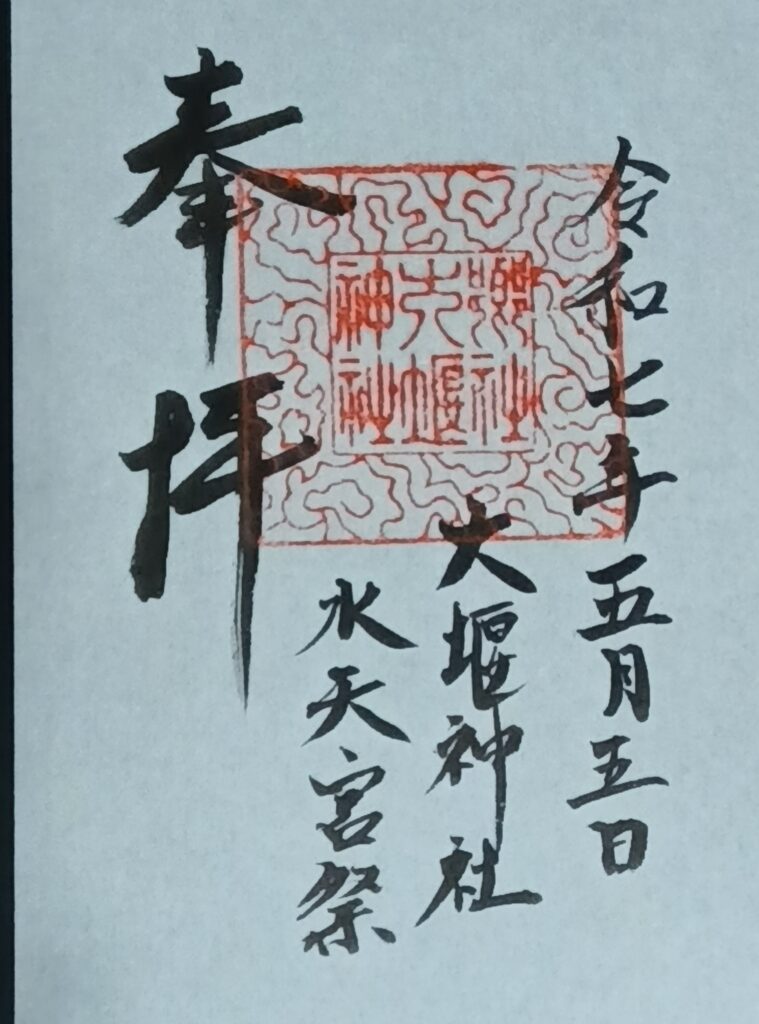 令和七年五月五日
大堰神社
水天宮祭
奉拝
郷社
大堰
神社